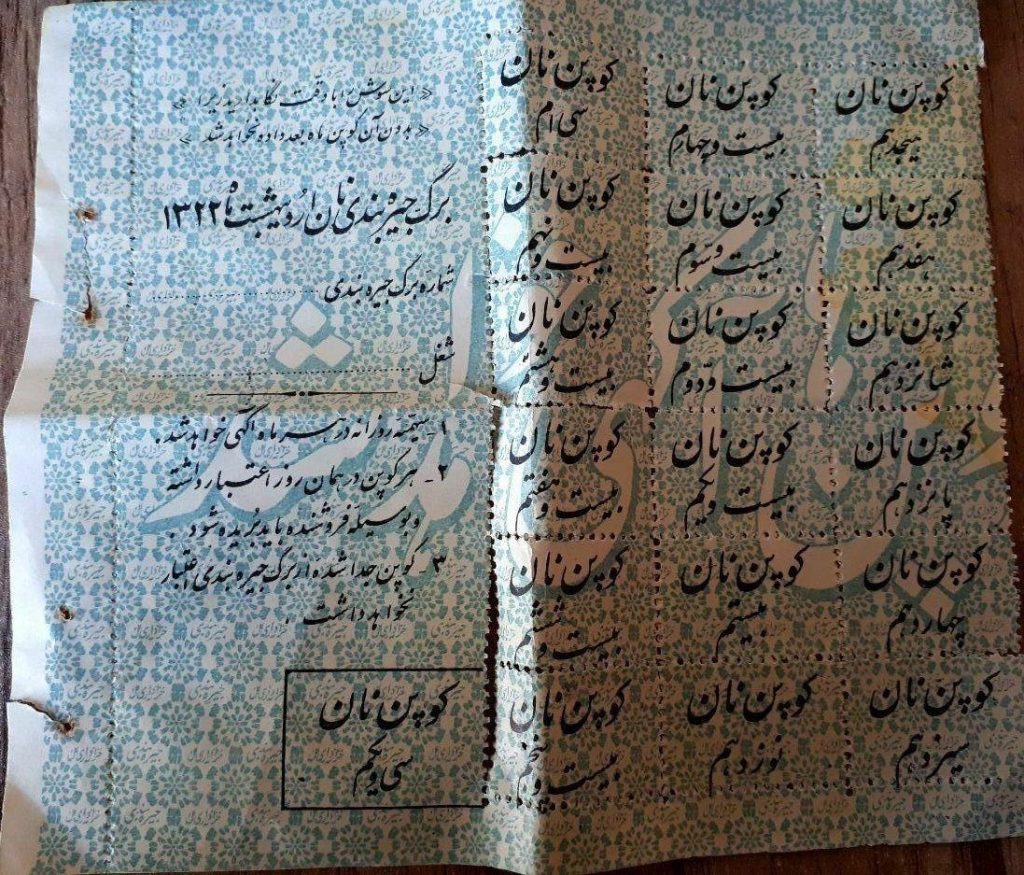 کوپن نان
هیجدهم
کوپن نان
هفدهم
کوپن نان
شانزدهم
کوپن نان
پانزدهم
کوپن نان
چهاردهم
کوپن نان
سیزدهم
کوپن نان
بیست و چهارم
کوپن نان
بیست و سوم
کوپن نان
بیست و دوم
کوپن نان
بیست و یکم
کوپن نان
بیستم
کوپن نان
نوزدهم
کوپن نان
سی ام
کوپن نان
بیست و نهم
کوپن نان
بیست و هشتم
کوپن نان
بیست و هفتم
کوپن نان
بیست و ششم
کوپن نان
بیست و پنجم
« این سوش را با دقت نگاهدارید زیرا »
« بدون آن کوپن ماه بعد داده نخواهد شد »
برگ جیره بندی نان اردیبهشت ماه ۱۳۲۲
شماره برگ جیره بندی
شغل
۱- سهمیه روزانه در هر ماه آگهی خواهد شد .
۲- هر کوپن در همان روز اعتبار داشته
و بوسیله فروشنده باید بریده شود .
۳- کوپن جدا شده از برگ جیره بندی اعتبار
نخواهد داشت .
کوپن نان
سی و یکم